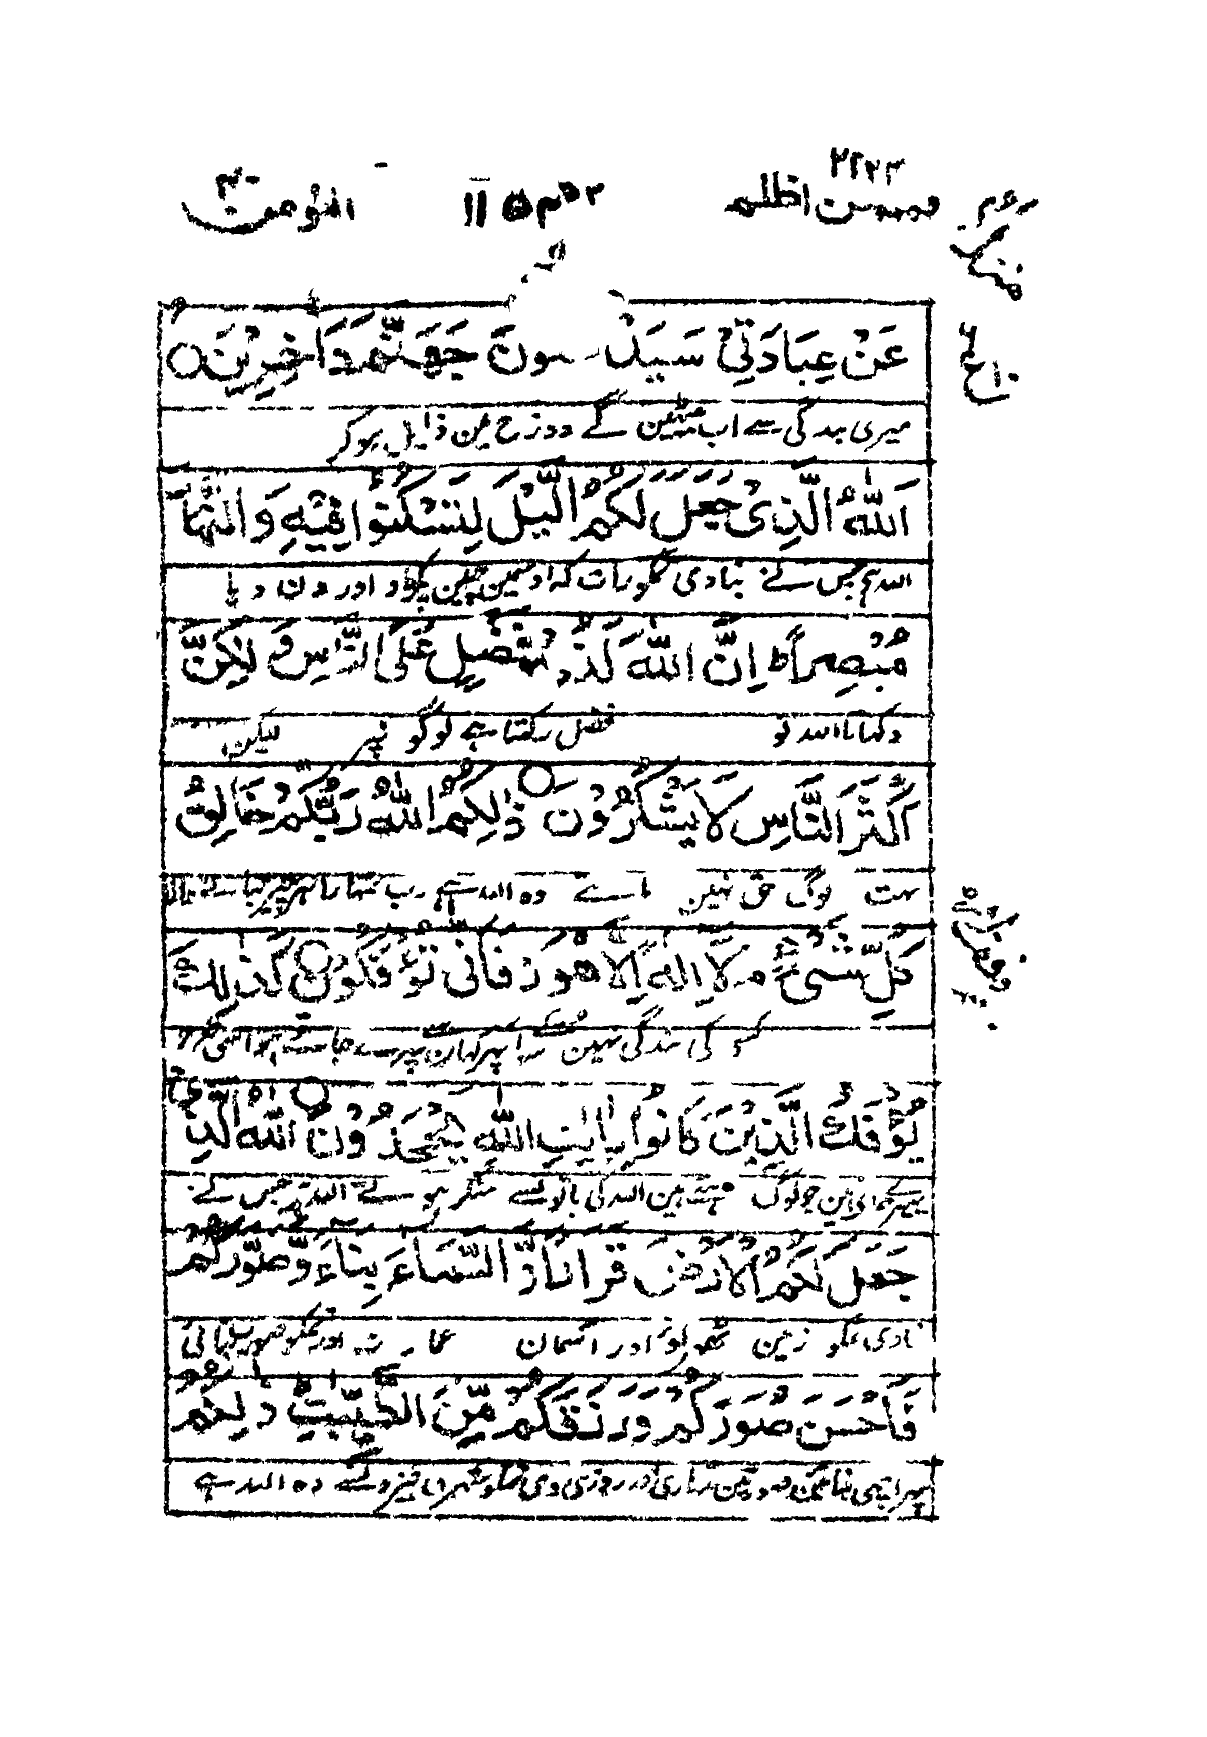 المؤمن ۴۰
فمن اظلم ۲۴
عَنْ عِبَادَتِیْ سَیَدْ ونَ جَهَنَّمَ دَاخِرِیْنَ
میری بندگی سے اب کے دوزخ مین ذلیل ہوکر
اَللّٰهُ الَّذِیْ جَعَلَ لَكُمُ الَّیْلَ لِتَسْكُنُوْا فِیْهِ وَالنَّهَا
اللہ ہے جس نے بنادی تمکو رات کہ اوسمین چین پکڑو اور دن دیا
مُبْصِرًا ط اِنَّ اللّٰهَ لَذُ فَضْلٍ عَلَی النَّاسِ وَلٰكِنَّ
دکھاتا اللہ تو فضل رکھتا ہے لوگو پر لیکن
اَكْثَرَ النَّاسِ لَا یَشْكُرُوْنَ ذٰلِكُمُ اللّٰهُ رَبُّكُمْ خَالِقُ
بہت لوگ حق نہین مانتے وہ اللہ ہے رب تمہارا ہر چیز
كُلِّ شَیْءٍ م لَاۤ اِلٰهَ اِلَّا هُوَ ز فَاَنّٰی تُؤْفَكُوْنَ كَذٰلِكَ
کسو کی بندگی نہین پہر کہان سے پہرے جاتے ہو
یُؤْفَكُ الَّذِیْنَ كَانُوْا بِاٰیٰتِ اللّٰهِ یَجْحَدُوْنَ اَللّٰهُ الَّذِیْ
جو لوگ ہین اللہ کی باتونسے منکر ہوتے اللہ ہے جس نے
جَعَلَ لَكُمُ الْاَرْضَ قَرَارًا وَّ السَّمَآءَ بِنَآءً وَّصَوَّرَكُمْ
بنادی تمکو زمین ٹھہراؤ اور آسمان عمارت اور تمکو صورت بنائی
فَاَحْسَنَ صُوَرَكُمْ وَرَزَقَكُمْ مِّنَ الطَّیِّبٰتِ ذٰلِكُمُ
پہر اچہی بنائین صورتین تمہاری اور روزی دی تمکو ستھری چیزونسے وہ اللہ ہے